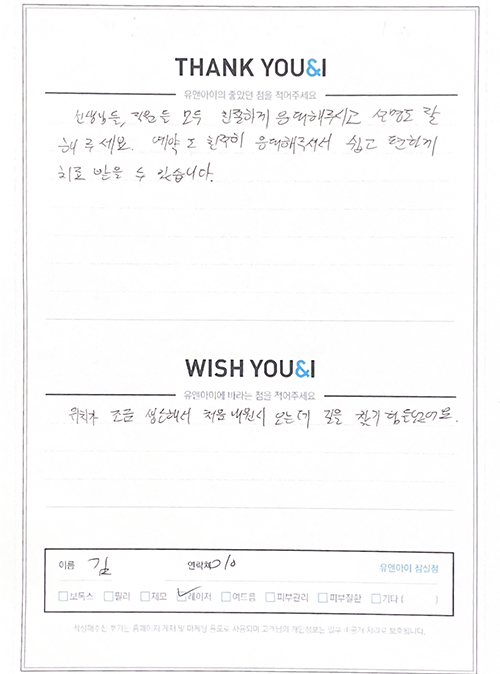 THANK YOU&I
유앤아이의 좋았던 점을 적어주세요
선생님들, 직원들 모두 친절하게 응대해주시고 설명도 잘
해주세요. 예약도 친절히 응대해주셔서 쉽고 편하게
치료 받을 수 있습니다.
WISH YOU&I
유앤아이에 바라는 점을 적어주세요
위치가 조금 생소해서 처음 내원시 오는데 길을 찾기 힘들었어요.
이름 김 연락처 010 유앤아이 삼성점
보톡스 필러 제모 레이저 여드름 피부관리 피부질환 기타 ( )
작성해주신 후기는 홈페이지 게재 및 마케팅 용도로 사용되며 고객님의 개인정보는 일부 비공개 처리로 보호됩니다.